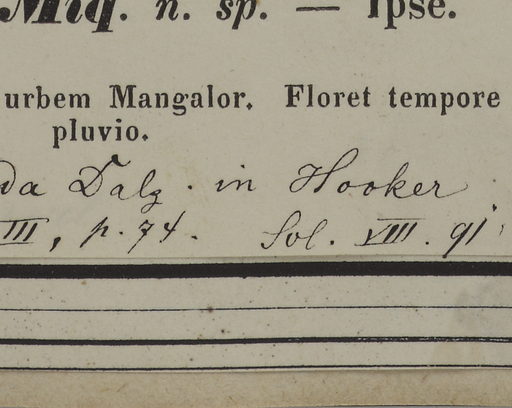 Miq. n. sp. — Ipse.
urbem Mangalor. Floret tempore
pluvio.
da Dalz. in Hooker
III, p. 74. Sol. VIII. 91